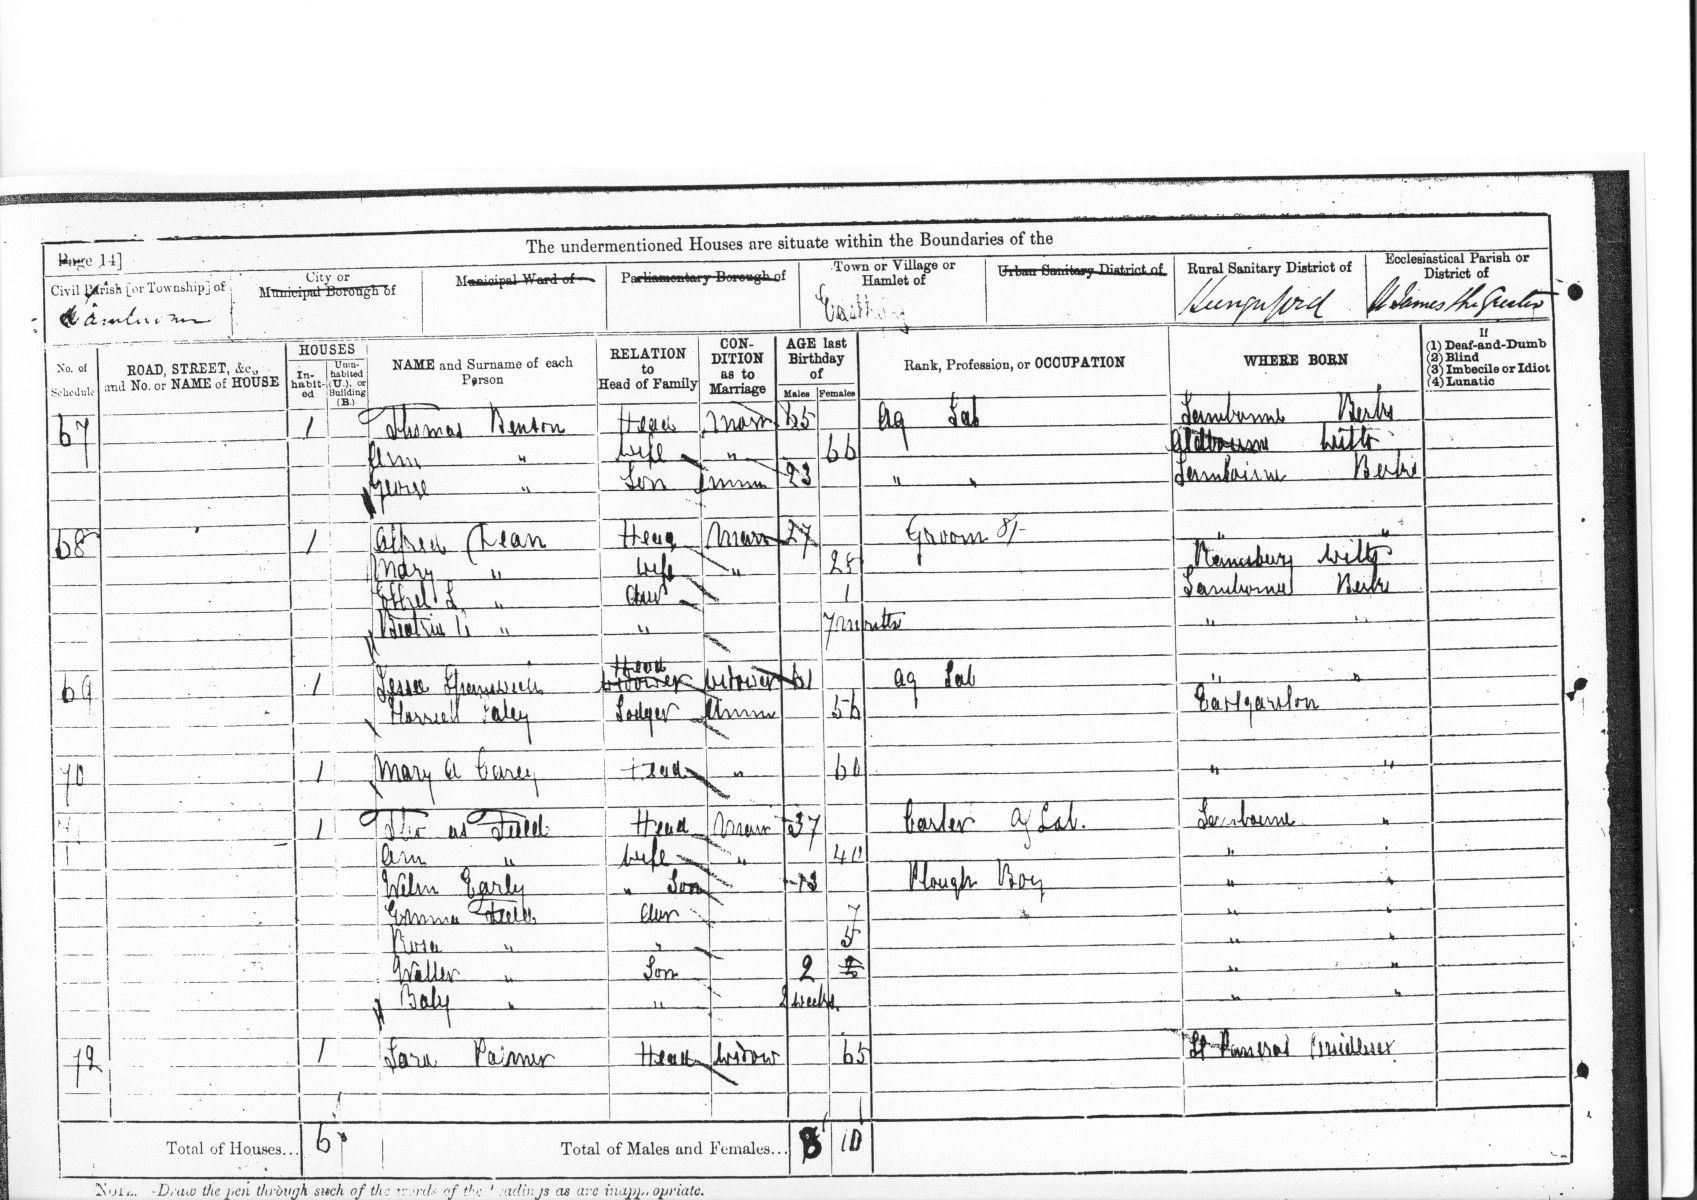 The undermentioned Houses are situate within the Boundaries of the
Page 14]
Civil Parish [or Township] of
Lambourn
City or
Municipal Borough of
Municipal Ward of
Parliamentary Borough of
Town or Village or
Hamlet of
Urban Sanitary District of
Rural Sanitary District of
Hungerford
Ecclesiastical Parish or
District of
St James the Greater
No. of
Schedule
ROAD, STREET, &c.,
and No. or NAME of HOUSE
HOUSES
In-
habit-
ed
Unin-
habited
(U.), or
Building
(B.)
NAME and Surname of each
Person
RELATION
to
Head of Family
CON-
DITION
as to
Marriage
AGE last
Birthday
of
Males Females
Rank, Profession, or OCCUPATION
WHERE BORN
If
(1) Deaf-and-Dumb
(2) Blind
(3) Imbecile or Idiot
(4) Lunatic
67 1 Thomas Benton Head Marr 65 Ag Lab Lambourne Berks
Ann " Wife " 66 Aldbourne Wilts
George " Son Unm 23 " " Lambourne Berks
68 1 Alfred Dean Head Marr 27 Groom 8/- " "
Mary " Wife " 28 Ramsbury Wilts
Ethel L " Daur 1 Lambourne Berks
Beatrice " " 7 Months " "
69 1 Jesse Head Widower Widower 61 Ag Lab " "
Harriett Lodger Unm 56 Eastgarston
70 1 Mary A Carey Head " 60 " "
1 Thomas Field Head Marr 37 Carter Ag Lab. Lambourne "
Ann " Wife " 40 " "
Willm Early " Son 13 Plough Boy " "
Emma Field Daur 7 " "
Rosa " " 5 " "
Walter " Son 2 2 " "
Baby " " 2 weeks " "
72 1 Sara Palmer Head Widow 65 St Pancras Middlesex
Total of Houses... 6
Total of Males and Females... 8 10
NOTE.—Draw the pen through such of the words of the headings as are inappropriate.